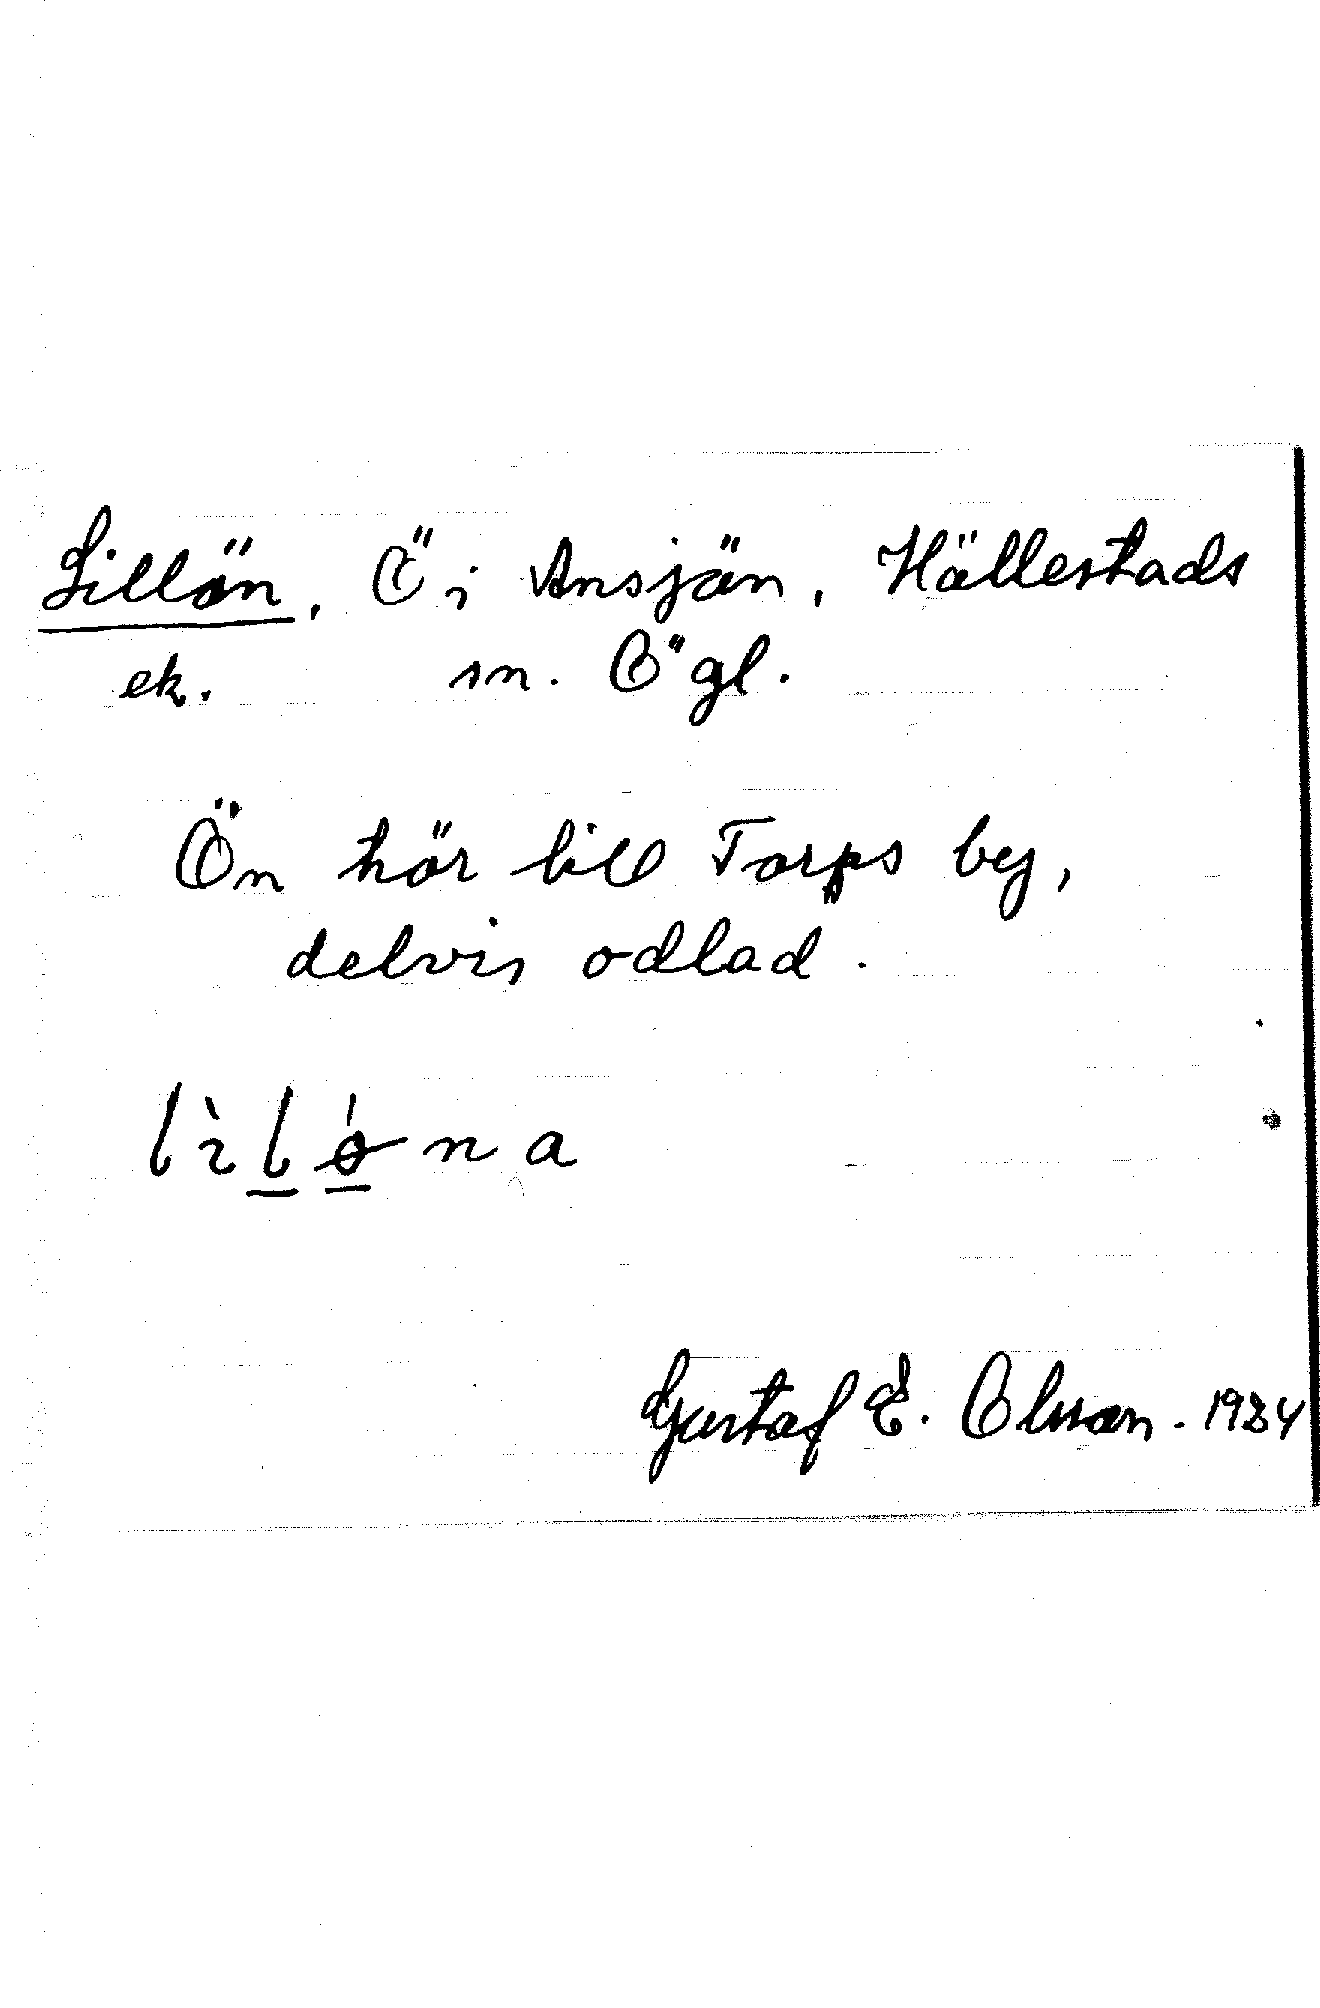 Lillön, Ö i Ansjön, Hällestads
ek. sn. Ögl.
Ön hör till Torps by,
delvis odlad.
lìlǿna
Gustaf E. Olsson. 1934